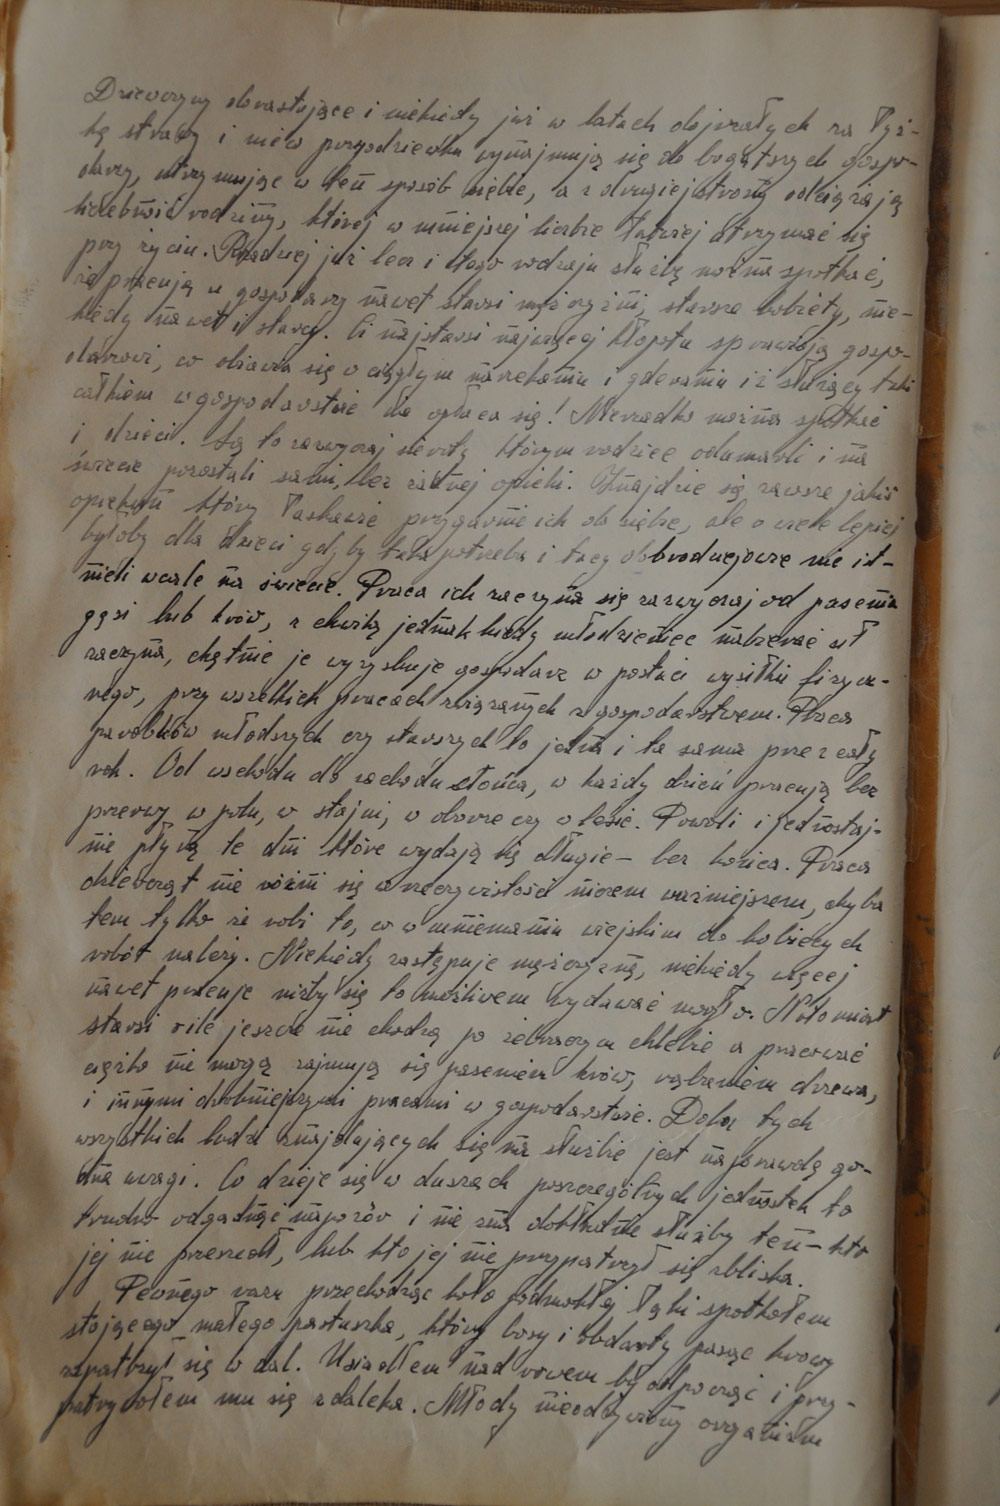 Dziewczyny dorastające i niekiedy już w latach dojrzałych za łyż-
kę strawy i nieco przyodziewku wynajmują się do bogatszych gospo-
darzy, utrzymując w ten sposób siebie, a z drugiej strony odciążają
liczebność rodziny, której w mniejszej liczbie łatwiej utrzymać się
przy życiu. Rzadziej już lecz i tego rodzaju służbę można spotkać,
że pracują u gospodarzy nawet starsi mężczyźni, starsze kobiety, nie-
kiedy nawet i starcy. Ci najstarsi najwięcej kłopotu sprawiają gospo-
darowi, co objawia się w ciągłym narzekaniu i gderaniu iż służący taki
całkiem w gospodarstwie nie opłaca się! Nierzadko można spotkać
i dzieci. Są to zazwyczaj sieroty którym rodzice odumarli i na
świecie pozostali sami, bez żadnej opieki. Znajdzie się zawsze jakiś
opiekun który łaskawie przygarnie ich do siebie, ale o wiele lepiej
byłoby dla dzieci gdyby taka potrzeba i tacy dobrodziejowie nie ist-
nieli wcale na świecie. Praca ich zaczyna się zazwyczaj od pasenia
gęsi lub krów, z chwilą jednak kiedy młodzieniec nabierać sił
zaczyna, chętnie je wyzyskuje gospodarz w postaci wysiłku fizycz-
nego, przy wszelkich pracach związanych z gospodarstwem. Praca
parobków młodszych czy starszych to jedna i ta sama przez cały
rok. Od wschodu do zachodu słońca, w każdy dzień pracują bez
przerwy w polu, w stajni, w oborze czy w lesie. Powoli i jednostaj-
nie płyną te dni które wydają się długie – bez końca. Praca
dziewcząt nie różni się w rzeczywistości niczem ważniejszem, chyba
tem tylko że robi to, co w mniemaniu wiejskim do kobiecych
robót należy. Niekiedy zastępuje mężczyznę, niekiedy więcej
nawet pracuje niżby się to możliwem wydawać mogło. Natomiast
starsi o ile jeszcze nie chodzą po żebraczym chlebie a pracować
ciężko nie mogą zajmują się paseniem krów, rąbaniem drzewa,
i innymi drobniejszymi pracami w gospodarstwie. Dola tych
wszystkich ludzi znajdujących się na służbie jest naprawdę go-
dna uwagi. Co dzieje się w duszach poszczególnych jednostek to
trudno odgadnąć na pozór i nie zna dokładnie służby ten – kto
jej nie przeszedł, lub kto jej nie przypatrzył się zbliska.
Pewnego razu przechodząc koło podmokłej łąki spotkałem
stojącego małego pastuszka, który bosy i obdarty pasąc krowy
zapatrzył się w dal. Usiadłem nad rowem by odpocząć i przy-
patrywałem mu się zdaleka. Młody nieodżywiony organizm